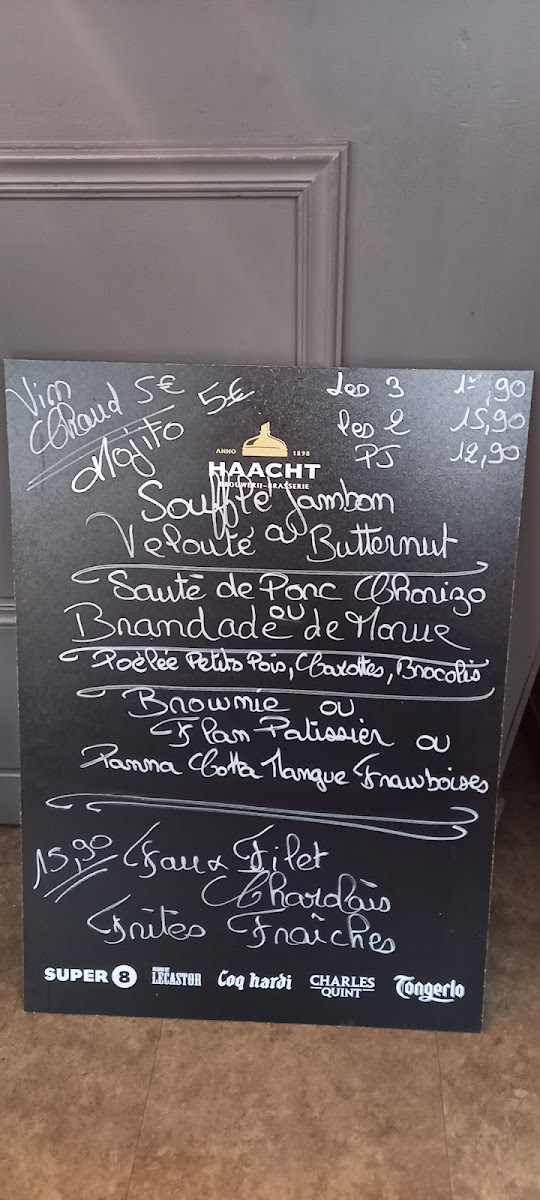 Vin Chaud 5€
Mojito 5€
Les 3 17,90
les 2 15,90
PJ 12,90
ANNO 1898
HAACHT
BROUWERIJ-BRASSERIE
Soufflé Jambon
ou
Velouté Butternut
Sauté de Porc Chorizo
ou
Brandade de Morue
Poêlée Petits Pois, Carottes, Brocolis
Brownie ou
Flan Patissier ou
Panna Cotta Mangue Framboises
15,90 Faux Filet
Charolais
Frites Fraîches
SUPER 8
LECASTOR
Coq hardi
CHARLES QUINT
Tongerlo